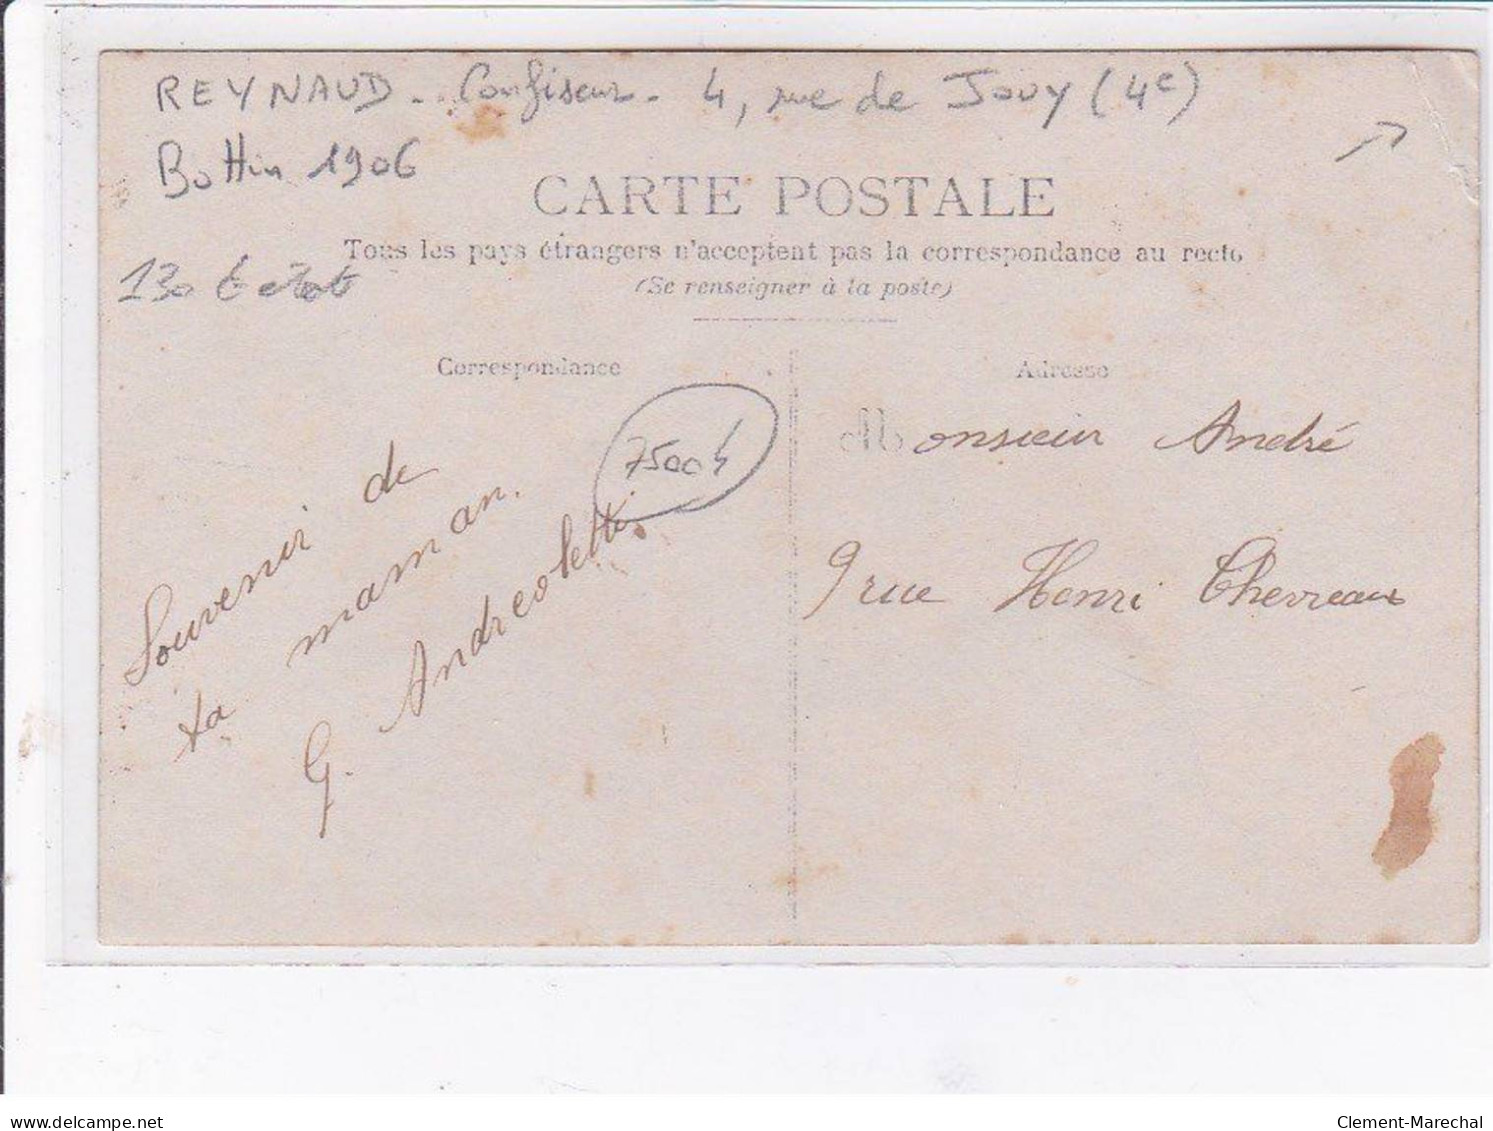 REYNAUD - Confiseur - 4, rue de Jouy (4e)
Bottin 1906
CARTE POSTALE
Tous les pays étrangers n'acceptent pas la correspondance au recto
(Se renseigner à la poste)
130
Correspondance
75004
Souvenir de
ta maman.
G. Andreoletti.
Adresse
Monsieur André
9 rue Henri Chevreau
delcampe.net
Clement-Marechal